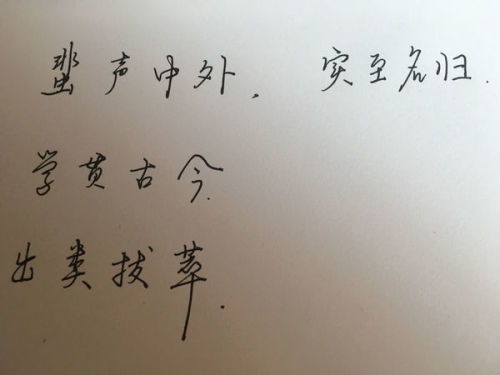 蜚声中外，实至名归.
学贯古今.
出类拔萃.